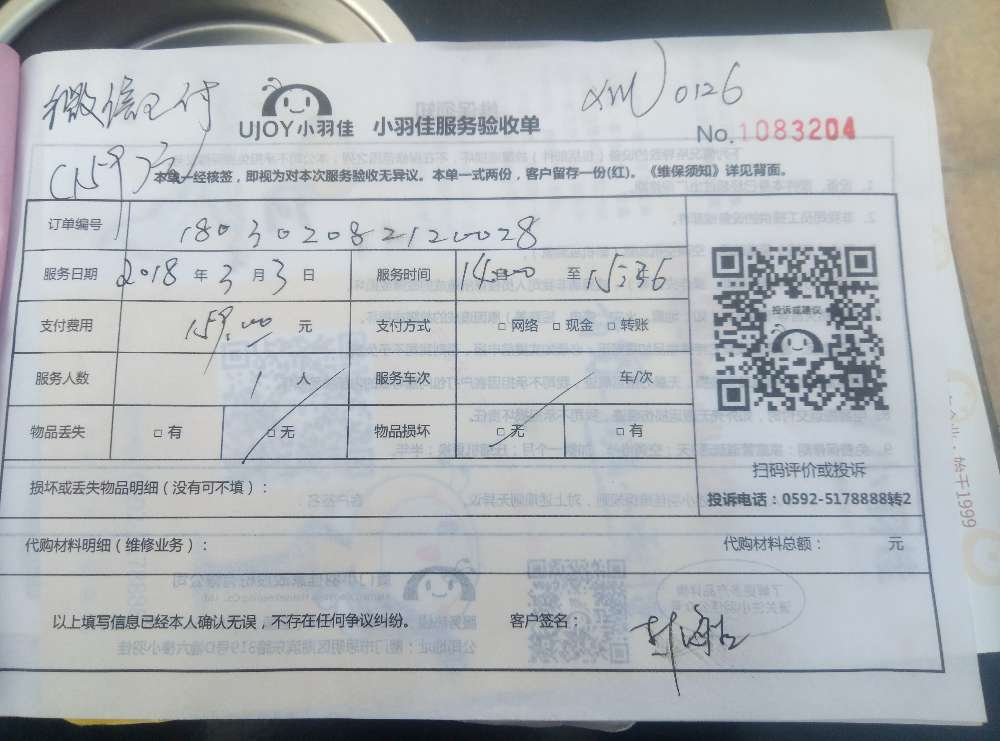 微信已付
XM 0126
UJOY小羽佳 小羽佳服务验收单
No.1083204
(159元)
本单一经核签，即视为对本次服务验收无异议。本单一式两份，客户留存一份(红)。《维保须知》详见背面。
订单编号 180302082120028
服务日期 2018 年 3 月 3 日 服务时间 14:00 至 15:36
支付费用 159.00 元 支付方式 □ 网络 □ 现金 □ 转账
服务人数 1 人 服务车次 车/次
物品丢失 □ 有 □ 无 物品损坏 □ 无 □ 有
投诉或建议
扫码评价或投诉
投诉电话：0592-5178888转2
损坏或丢失物品明细（没有可不填）：
代购材料明细（维修业务）： 代购材料总额： 元
以上填写信息已经本人确认无误，不存在任何争议纠纷。 客户签名：